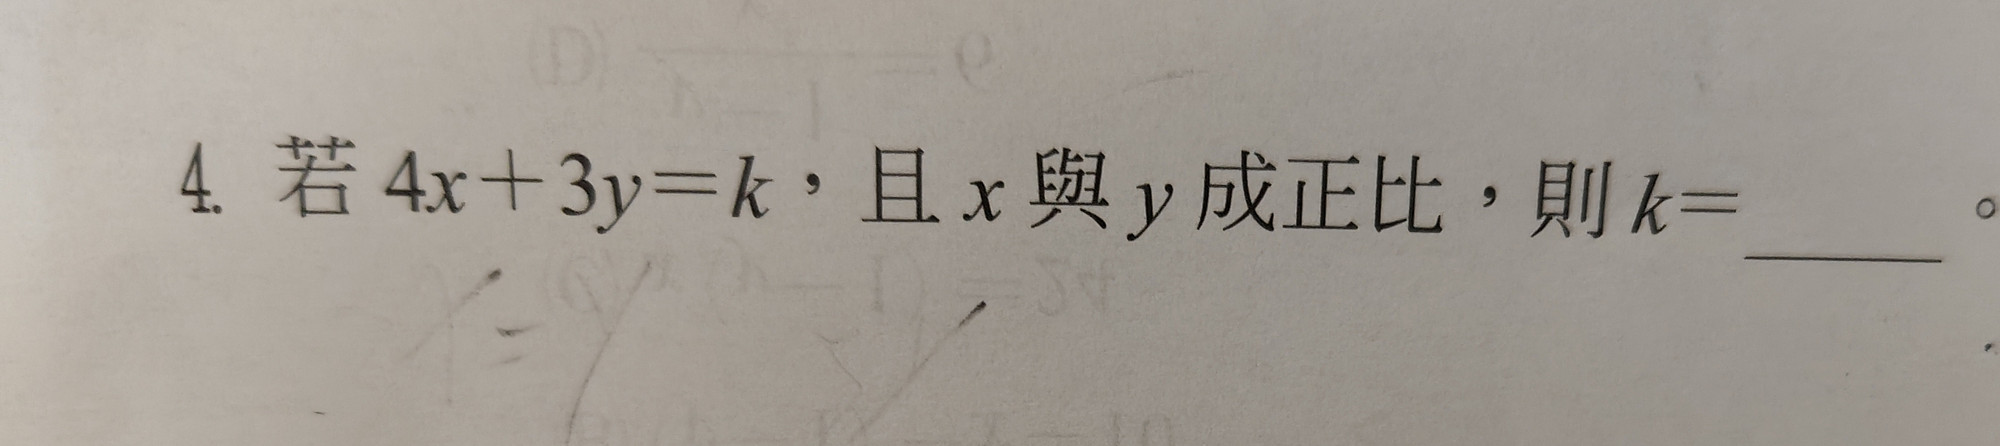 4. 若 4x+3y=k，且 x 與 y 成正比，則 k=____。